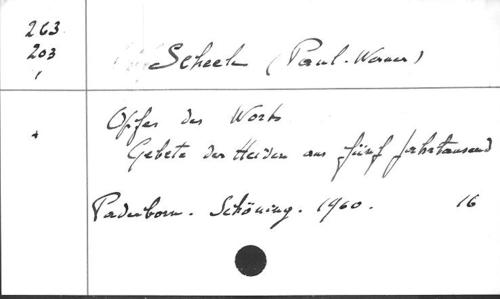 263
203
1
Scheele (Paul-Werner)
*
Opfer des Worts
Gebete der Heiden aus fünf Jahrtausend
Paderborn. Schöning. 1960. 16